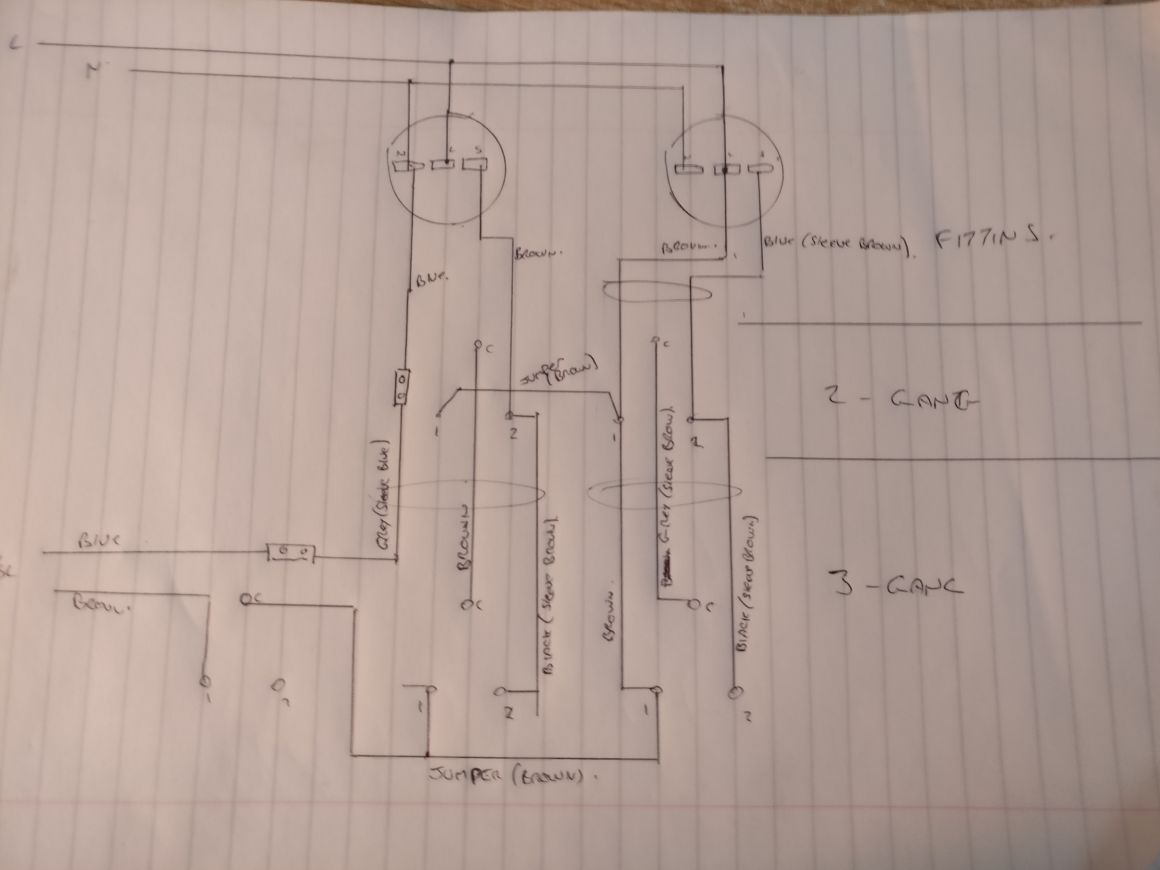 L
N
N
L
S
L
BROWN.
BROWN.
BLUE (SLEEVE BROWN).
FITTINS.
BLUE.
C
C
JUMPER
(BROWN)
2 - GANG
1
2
1
GREY (SLEEVE BLUE)
BROWN
BLACK (SLEEVE BROWN)
GREY (SLEEVE BROWN)
BROWN.
BLACK (SLEEVE BROWN)
BLUE
BROWN.
C
C
C
3 - GANG
1
2
1
2
1
2
JUMPER (BROWN).